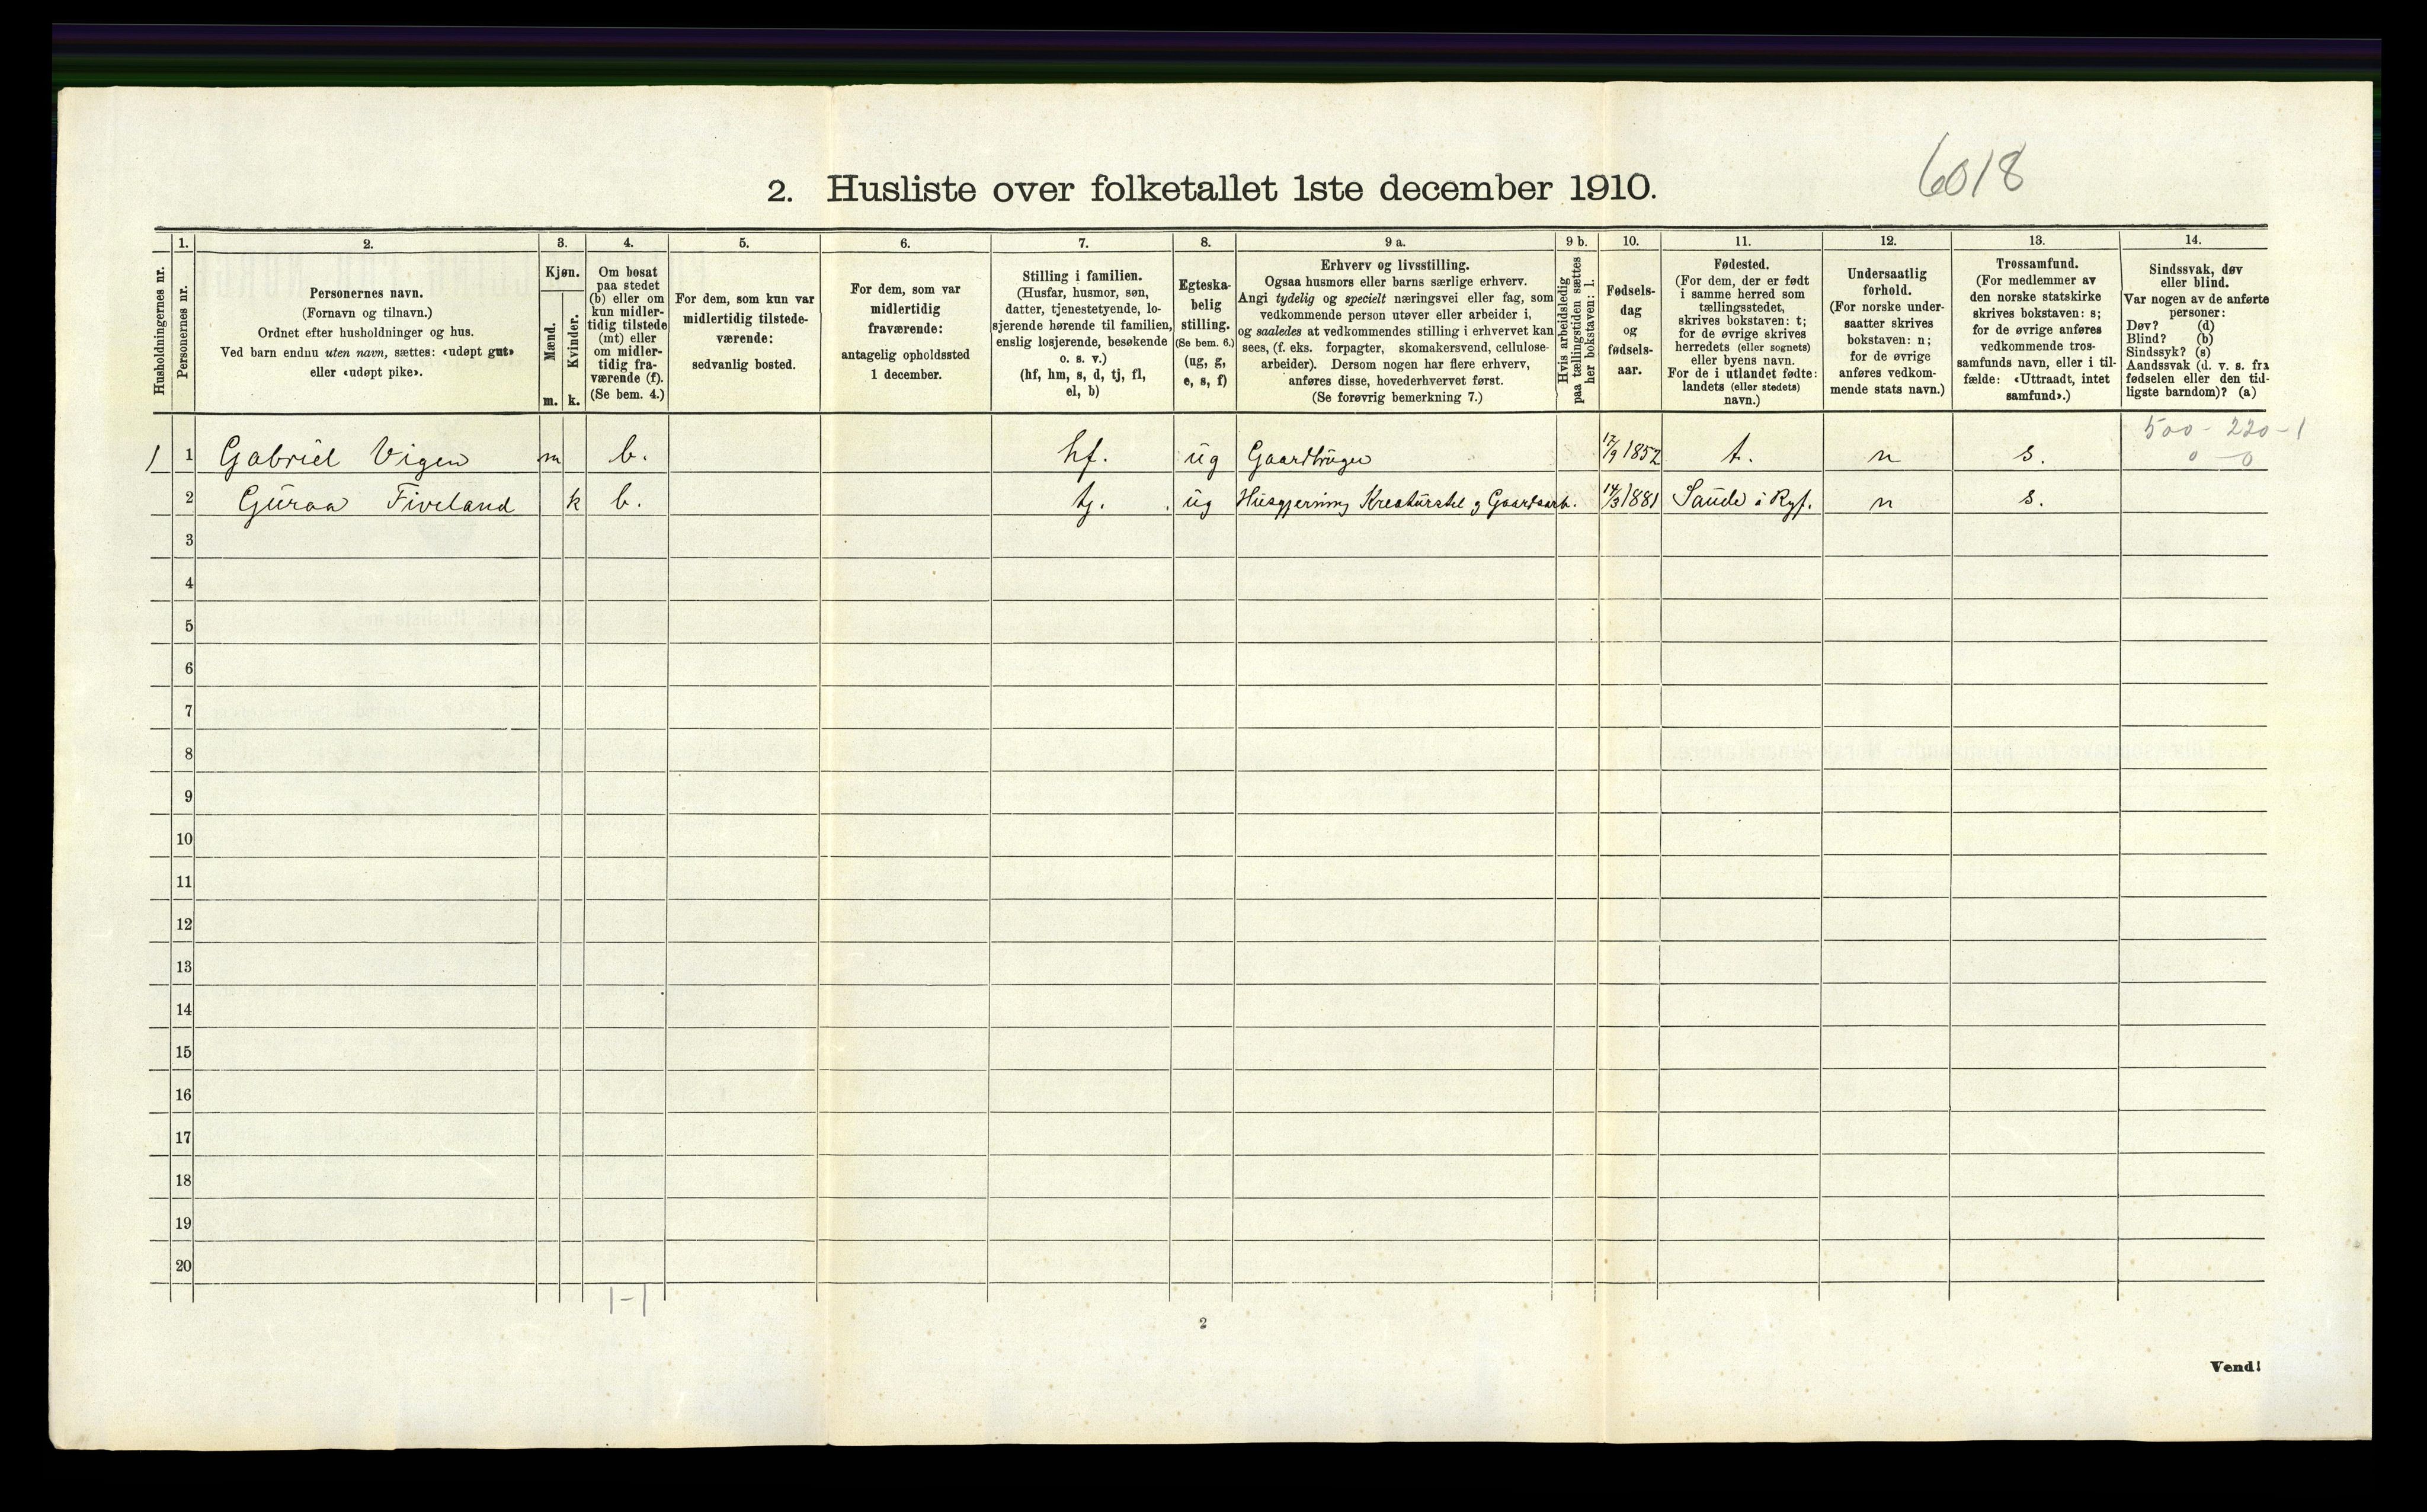 2. Husliste over folketallet 1ste december 1910.
6018
1. 2. 3. 4. 5. 6. 7. 8. 9 a. 9 b. 10. 11. 12. 13. 14.
Husholdningernes nr.
Personernes nr.
Personernes navn.
(Fornavn og tilnavn.)
Ordnet efter husholdninger og hus.
Ved barn endnu uten navn, sættes: «udøpt gut»
eller «udøpt pike».
Kjøn.
Mænd.
Kvinder.
m. k.
Om bosat
paa stedet
(b) eller om
kun midler-
tidig tilstede
(mt) eller
om midler-
tidig fra-
værende (f).
(Se bem. 4.)
For dem, som kun var
midlertidig tilstede-
værende:
sedvanlig bosted.
For dem, som var
midlertidig
fraværende:
antagelig opholdssted
1 december.
Stilling i familien.
(Husfar, husmor, søn,
datter, tjenestetyende, lo-
sjerende hørende til familien,
enslig losjerende, besøkende
o. s. v.)
(hf, hm, s, d, tj, fl,
el, b)
Egteska-
belig
stilling.
(Se bem. 6.)
(ug, g,
e, s, f)
Erhverv og livsstilling.
Ogsaa husmors eller barns særlige erhverv.
Angi tydelig og specielt næringsvei eller fag, som
vedkommende person utøver eller arbeider i,
og saaledes at vedkommendes stilling i erhvervet kan
sees, (f. eks. forpagter, skomakersvend, cellulose-
arbeider). Dersom nogen har flere erhverv,
anføres disse, hovederhvervet først.
(Se forøvrig bemerkning 7.)
Hvis arbeidsledig
paa tællingstiden sættes
her bokstaven: l.
Fødsels-
dag
og
fødsels-
aar.
Fødested.
(For dem, der er født
i samme herred som
tællingsstedet,
skrives bokstaven: t;
for de øvrige skrives
herredets (eller sognets)
eller byens navn.
For de i utlandet fødte:
landets (eller stedets)
navn.)
Undersaatlig
forhold.
(For norske under-
saatter skrives
bokstaven: n;
for de øvrige
anføres vedkom-
mende stats navn.)
Trossamfund.
(For medlemmer av
den norske statskirke
skrives bokstaven: s;
for de øvrige anføres
vedkommende tros-
samfunds navn, eller i til-
fælde: «Uttraadt, intet
samfund».)
Sindssvak, døv
eller blind.
Var nogen av de anførte
personer:
Døv? (d)
Blind? (b)
Sindssyk? (s)
Aandssvak (d. v. s. fra
fødselen eller den tid-
ligste barndom)? (a)
500 - 220 - 1
0 - 0
1 1 Gabriel Vigen m b. hf. ug Gaardbruger 17/9 1852 t. n s.
2 Guraa Fiveland k b. tj. ug Husgjerning Kreaturstel og Gaardsarb. 14/3 1881 Saude i Ryf. n s.
3
4
5
6
7
8
9
10
11
12
13
14
15
16
17
18
19
20
1-1
2
Vend!